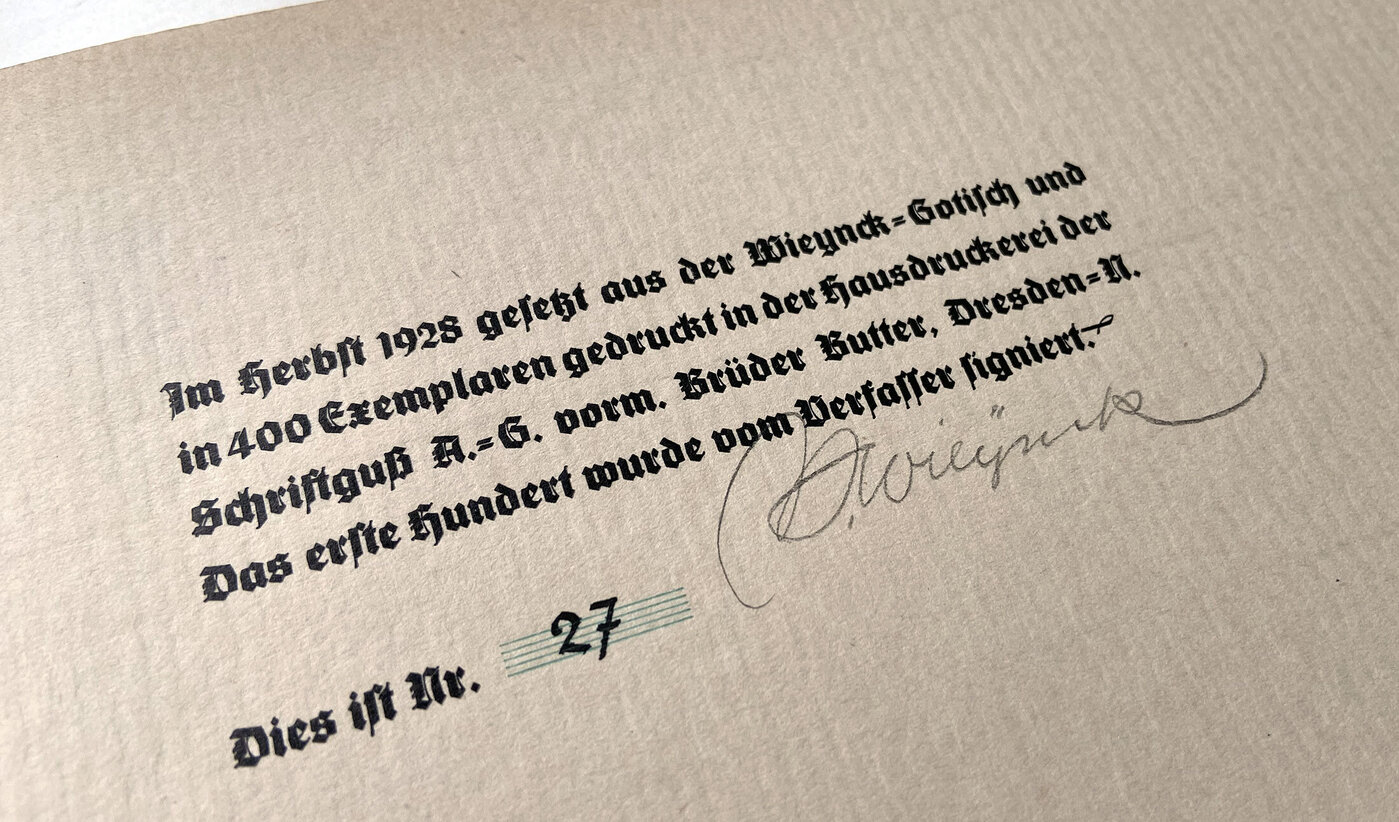 Im Herbſt 1928 geſetzt aus der Wieynck=Gotiſch und
in 400 Exemplaren gedruckt in der Hausdruckerei der
Schriftguß A.=G. vorm. Brüder Butter, Dresden=N.
Das erſte Hundert wurde vom Verfaſſer ſigniert:
H. Wieÿnck
Dies iſt Nr. 27